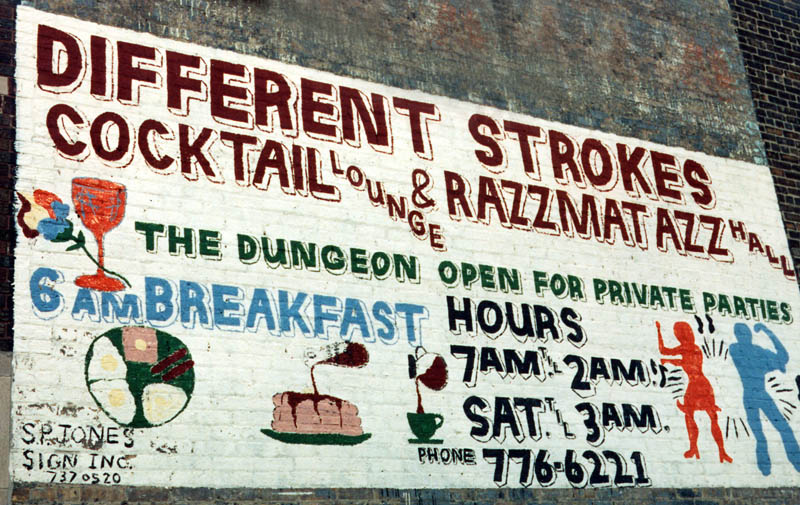 DIFFERENT STROKES
COCKTAIL LOUNGE & RAZZMATAZZ HALL
THE DUNGEON OPEN FOR PRIVATE PARTIES
6 AM BREAKFAST
HOURS
7AM TIL 2AM!
SAT. TIL 3AM.
PHONE 776-6221
S.P. JONES
SIGN INC.
737 0520